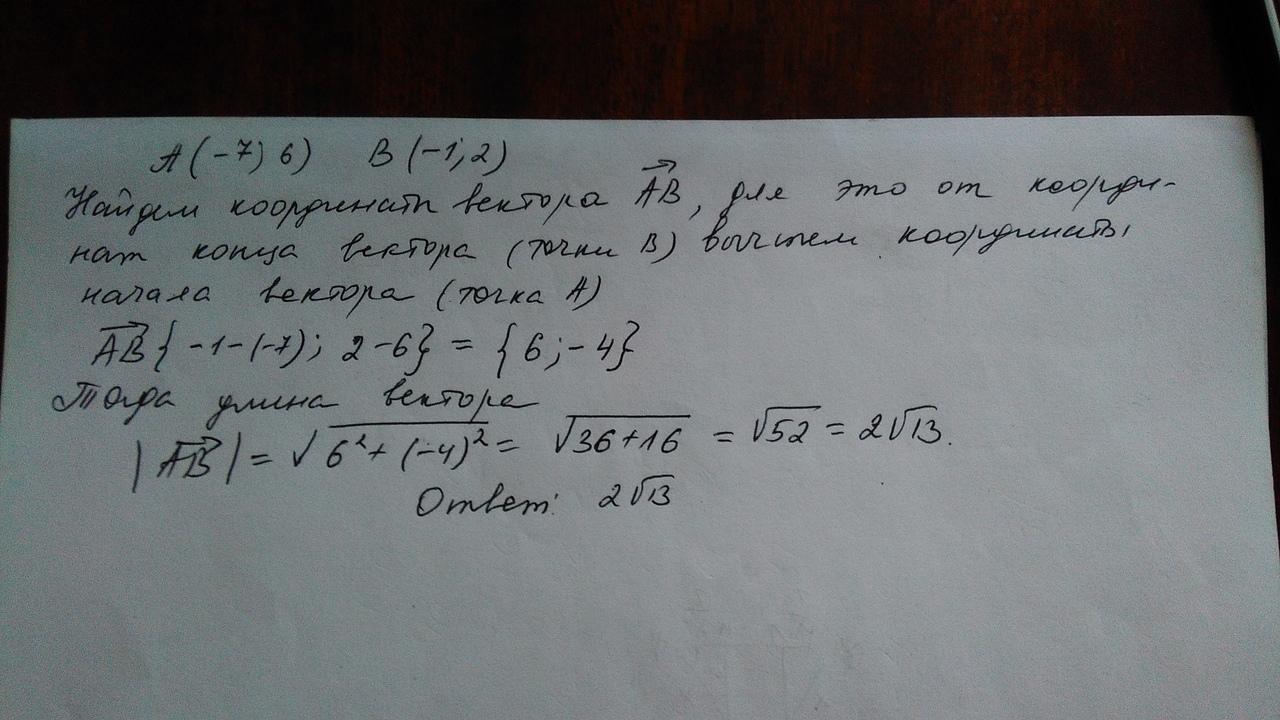 A(-7; 6) B(-1; 2)
Найдем координаты вектора \overrightarrow{AB}, для это от коорди-
нат конца вектора (точки B) вычтем координаты
начала вектора (точка A)
\overrightarrow{AB}{-1-(-7); 2-6} = {6; -4}
Тогда длина вектора
|\overrightarrow{AB}| = √(6²+(-4)²) = √(36+16) = √52 = 2√13.
Ответ: 2√13